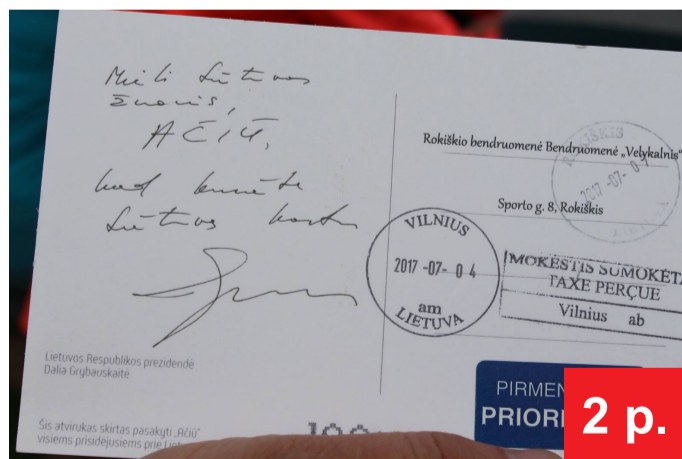 Mieli Lietuvos
žmonės,
AČIŪ,
kad
Lietuvos
Lietuvos Respublikos prezidendė
Dalia Grybauskaitė
Šis atvirukas skirtas pasakyti „Ačiū“
visiems prisidėjusiems prie
Rokiškio bendruomenė Bendruomenė „Velykalnis“
Sporto g. 8, Rokiškis
ROKIŠKIS
2017 -07- 0
VILNIUS
2017 -07- 0 4
am
LIETUVA
MOKESTIS SUMOKĖTA
TAXE PERÇUE
Vilnius ab
2 p.